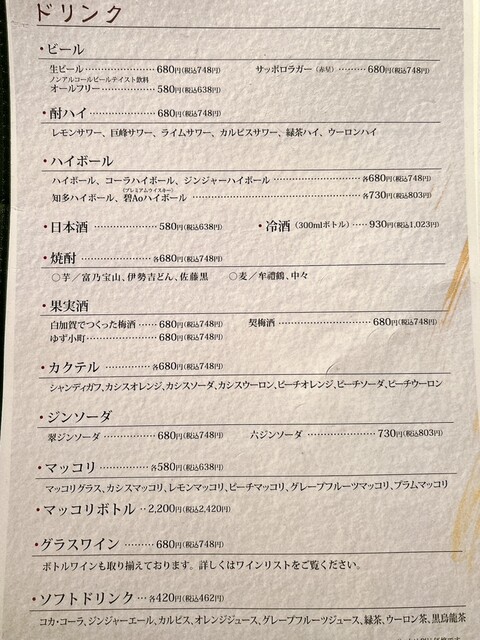 ドリンク
・ビール
生ビール……………680円(税込748円)
サッポロラガー（赤星）………680円(税込748円)
ノンアルコールビールテイスト飲料
オールフリー……………580円(税込638円)
・酎ハイ……………680円(税込748円)
レモンサワー、巨峰サワー、ライムサワー、カルピスサワー、緑茶ハイ、ウーロンハイ
・ハイボール
ハイボール、コーラハイボール、ジンジャーハイボール……………各680円(税込748円)
(プレミアムウイスキー)
知多ハイボール、碧Aoハイボール……………各730円(税込803円)
・日本酒……………580円(税込638円)
・冷酒（300mlボトル）……930円(税込1,023円)
・焼酎……………各680円(税込748円)
○芋／富乃宝山、伊勢吉どん、佐藤黒　○麦／牟禮鶴、中々
・果実酒
白加賀でつくった梅酒……680円(税込748円)
契梅酒……………680円(税込748円)
ゆず小町……………680円(税込748円)
・カクテル……………各680円(税込748円)
シャンディガフ、カシスオレンジ、カシスソーダ、カシスウーロン、ピーチオレンジ、ピーチソーダ、ピーチウーロン
・ジンソーダ
翠ジンソーダ……………680円(税込748円)
六ジンソーダ……………730円(税込803円)
・マッコリ……………各580円(税込638円)
マッコリグラス、カシスマッコリ、レモンマッコリ、ピーチマッコリ、グレープフルーツマッコリ、プラムマッコリ
・マッコリボトル‥2,200円(税込2,420円)
・グラスワイン………680円(税込748円)
ボトルワインも取り揃えております。詳しくはワインリストをご覧ください。
・ソフトドリンク……各420円(税込462円)
コカ・コーラ、ジンジャーエール、カルピス、オレンジジュース、グレープフルーツジュース、緑茶、ウーロン茶、黒烏龍茶